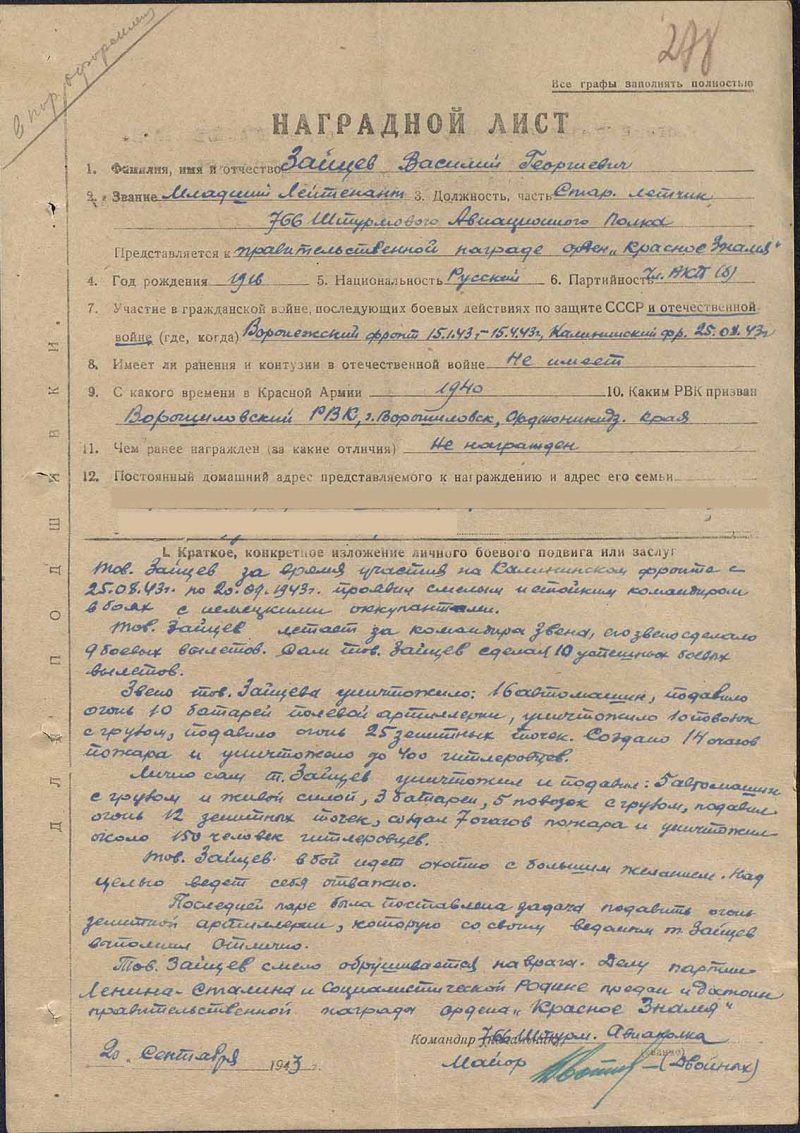 в пор. оформлен
278
Все графы заполнять полностью
НАГРАДНОЙ ЛИСТ
1. Фамилия, имя и отчество Зайцев Василий Георгиевич
2. Звание Младший Лейтенант 3. Должность, часть Стар. летчик
766 Штурмового Авиационного Полка
Представляется к правительственной награде орден „Красное Знамя"
4. Год рождения 1918 5. Национальность Русский 6. Партийность Чл. ВКП(б)
7. Участие в гражданской войне, последующих боевых действиях по защите СССР и отечественной
войне (где, когда) Воронежский фронт 15.1.43г-15.4.43г, Калининский фр. 25.08.43г
8. Имеет ли ранения и контузии в отечественной войне Не имеет
9. С какого времени в Красной Армии 1940 10. Каким РВК призван
Ворошиловский РВК, г. Ворошиловск, Орджоникидз. края
11. Чем ранее награжден (за какие отличия) Не награжден
12. Постоянный домашний адрес представляемого к награждению и адрес его семьи
I. Краткое, конкретное изложение личного боевого подвига или заслуг
Тов. Зайцев за время участия на Калининском фронте с
25.08.43г. по 20.09.1943г. проявил смелым и стойким командиром
в боях с немецкими оккупантами.
Тов. Зайцев летает за командира звена, его звено сделало
9 боевых вылетов. Сам тов. Зайцев сделал 10 успешных боевых
вылетов.
Звено тов. Зайцева уничтожило: 16 автомашин, подавило
огонь 10 батарей полевой артиллерии, уничтожило 10 повозок
с грузом, подавило огонь 25 зенитных точек. Создано 14 очагов
пожара и уничтожено до 400 гитлеровцев.
Лично сам т. Зайцев уничтожил и подавил: 5 автомашин
с грузом и живой силой, 3 батареи, 5 повозок с грузом, подавил
огонь 12 зенитных точек, создал 7 очагов пожара и уничтожил
около 150 человек гитлеровцев.
Тов. Зайцев в бой идет охотно с большим желанием. Над
целью ведет себя отважно.
Последней паре была поставлена задача подавить огонь
зенитной артиллерии, которую со своим ведомым т. Зайцев
выполнил отлично.
Тов. Зайцев смело обрушивается на врага. Делу партии
Ленина-Сталина и Социалистической Родине предан и достоин
правительственной награды ордена „Красное Знамя"
Командир 766 Штурм. Авиаполка
20. Сентября 1943 г.
Майор (Двойных)
ДЛЯ ПОДШИВКИ.